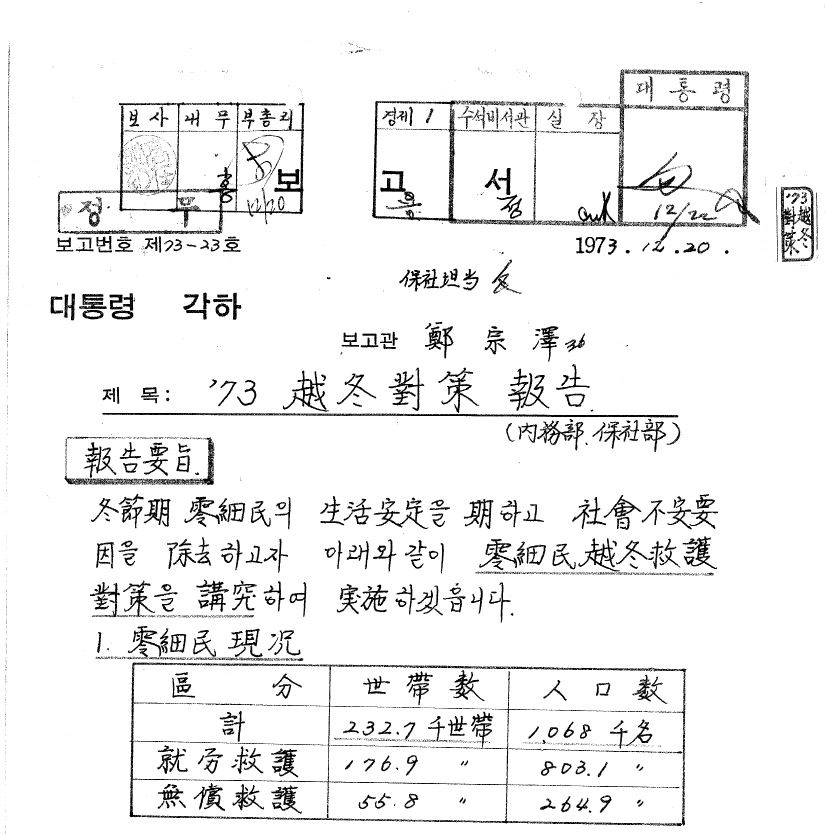 대통령
보사 내무 부총리 경제1 수석비서관 실장
보 고 서
정무
12/20 12/22
보고번호 제73-23호 1973.12.20.
'73越冬對策
保社担当
대통령 각하
보고관 鄭宗澤
제 목: '73 越冬對策 報告
(內務部, 保社部)
報告要旨.
冬節期 零細民의 生活安定을 期하고 社會不安要
因을 除去하고자 아래와 같이 零細民越冬救護
對策을 講究하여 実施하겠읍니다.
1. 零細民現况
區 分 世帶数 人口数
計 232.7千世帶 1,068千名
就労救護 176.9 〃 803.1 〃
無償救護 55.8 〃 264.9 〃